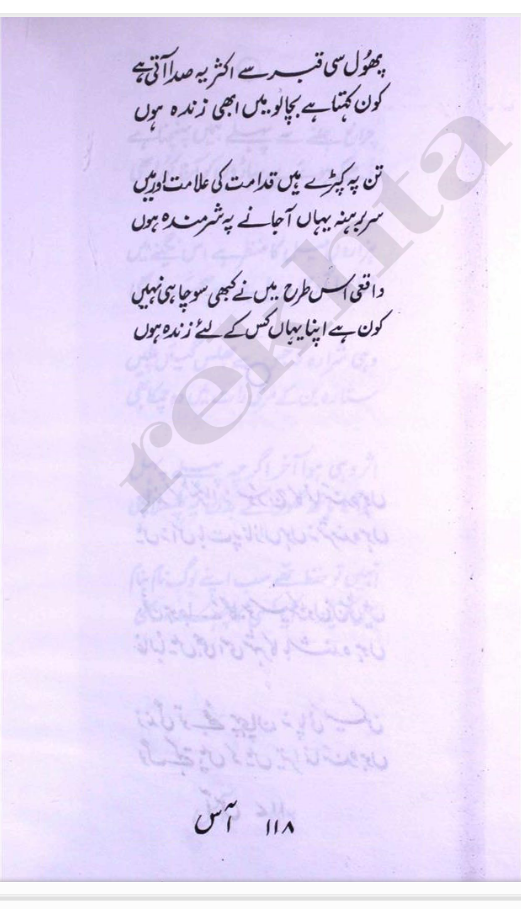 پھول سی قبر سے اکثر یہ صدا آتی ہے
کون کہتا ہے بچالو میں ابھی زندہ ہوں
تن پہ کپڑے ہیں قدامت کی علامت اور میں
سر برہنہ یہاں آ جانے پہ شرمندہ ہوں
واقعی اس طرح میں نے کبھی سوچا ہی نہیں
کون ہے اپنا یہاں کس کے لئے زندہ ہوں
rekhta
۱۱۸ آس